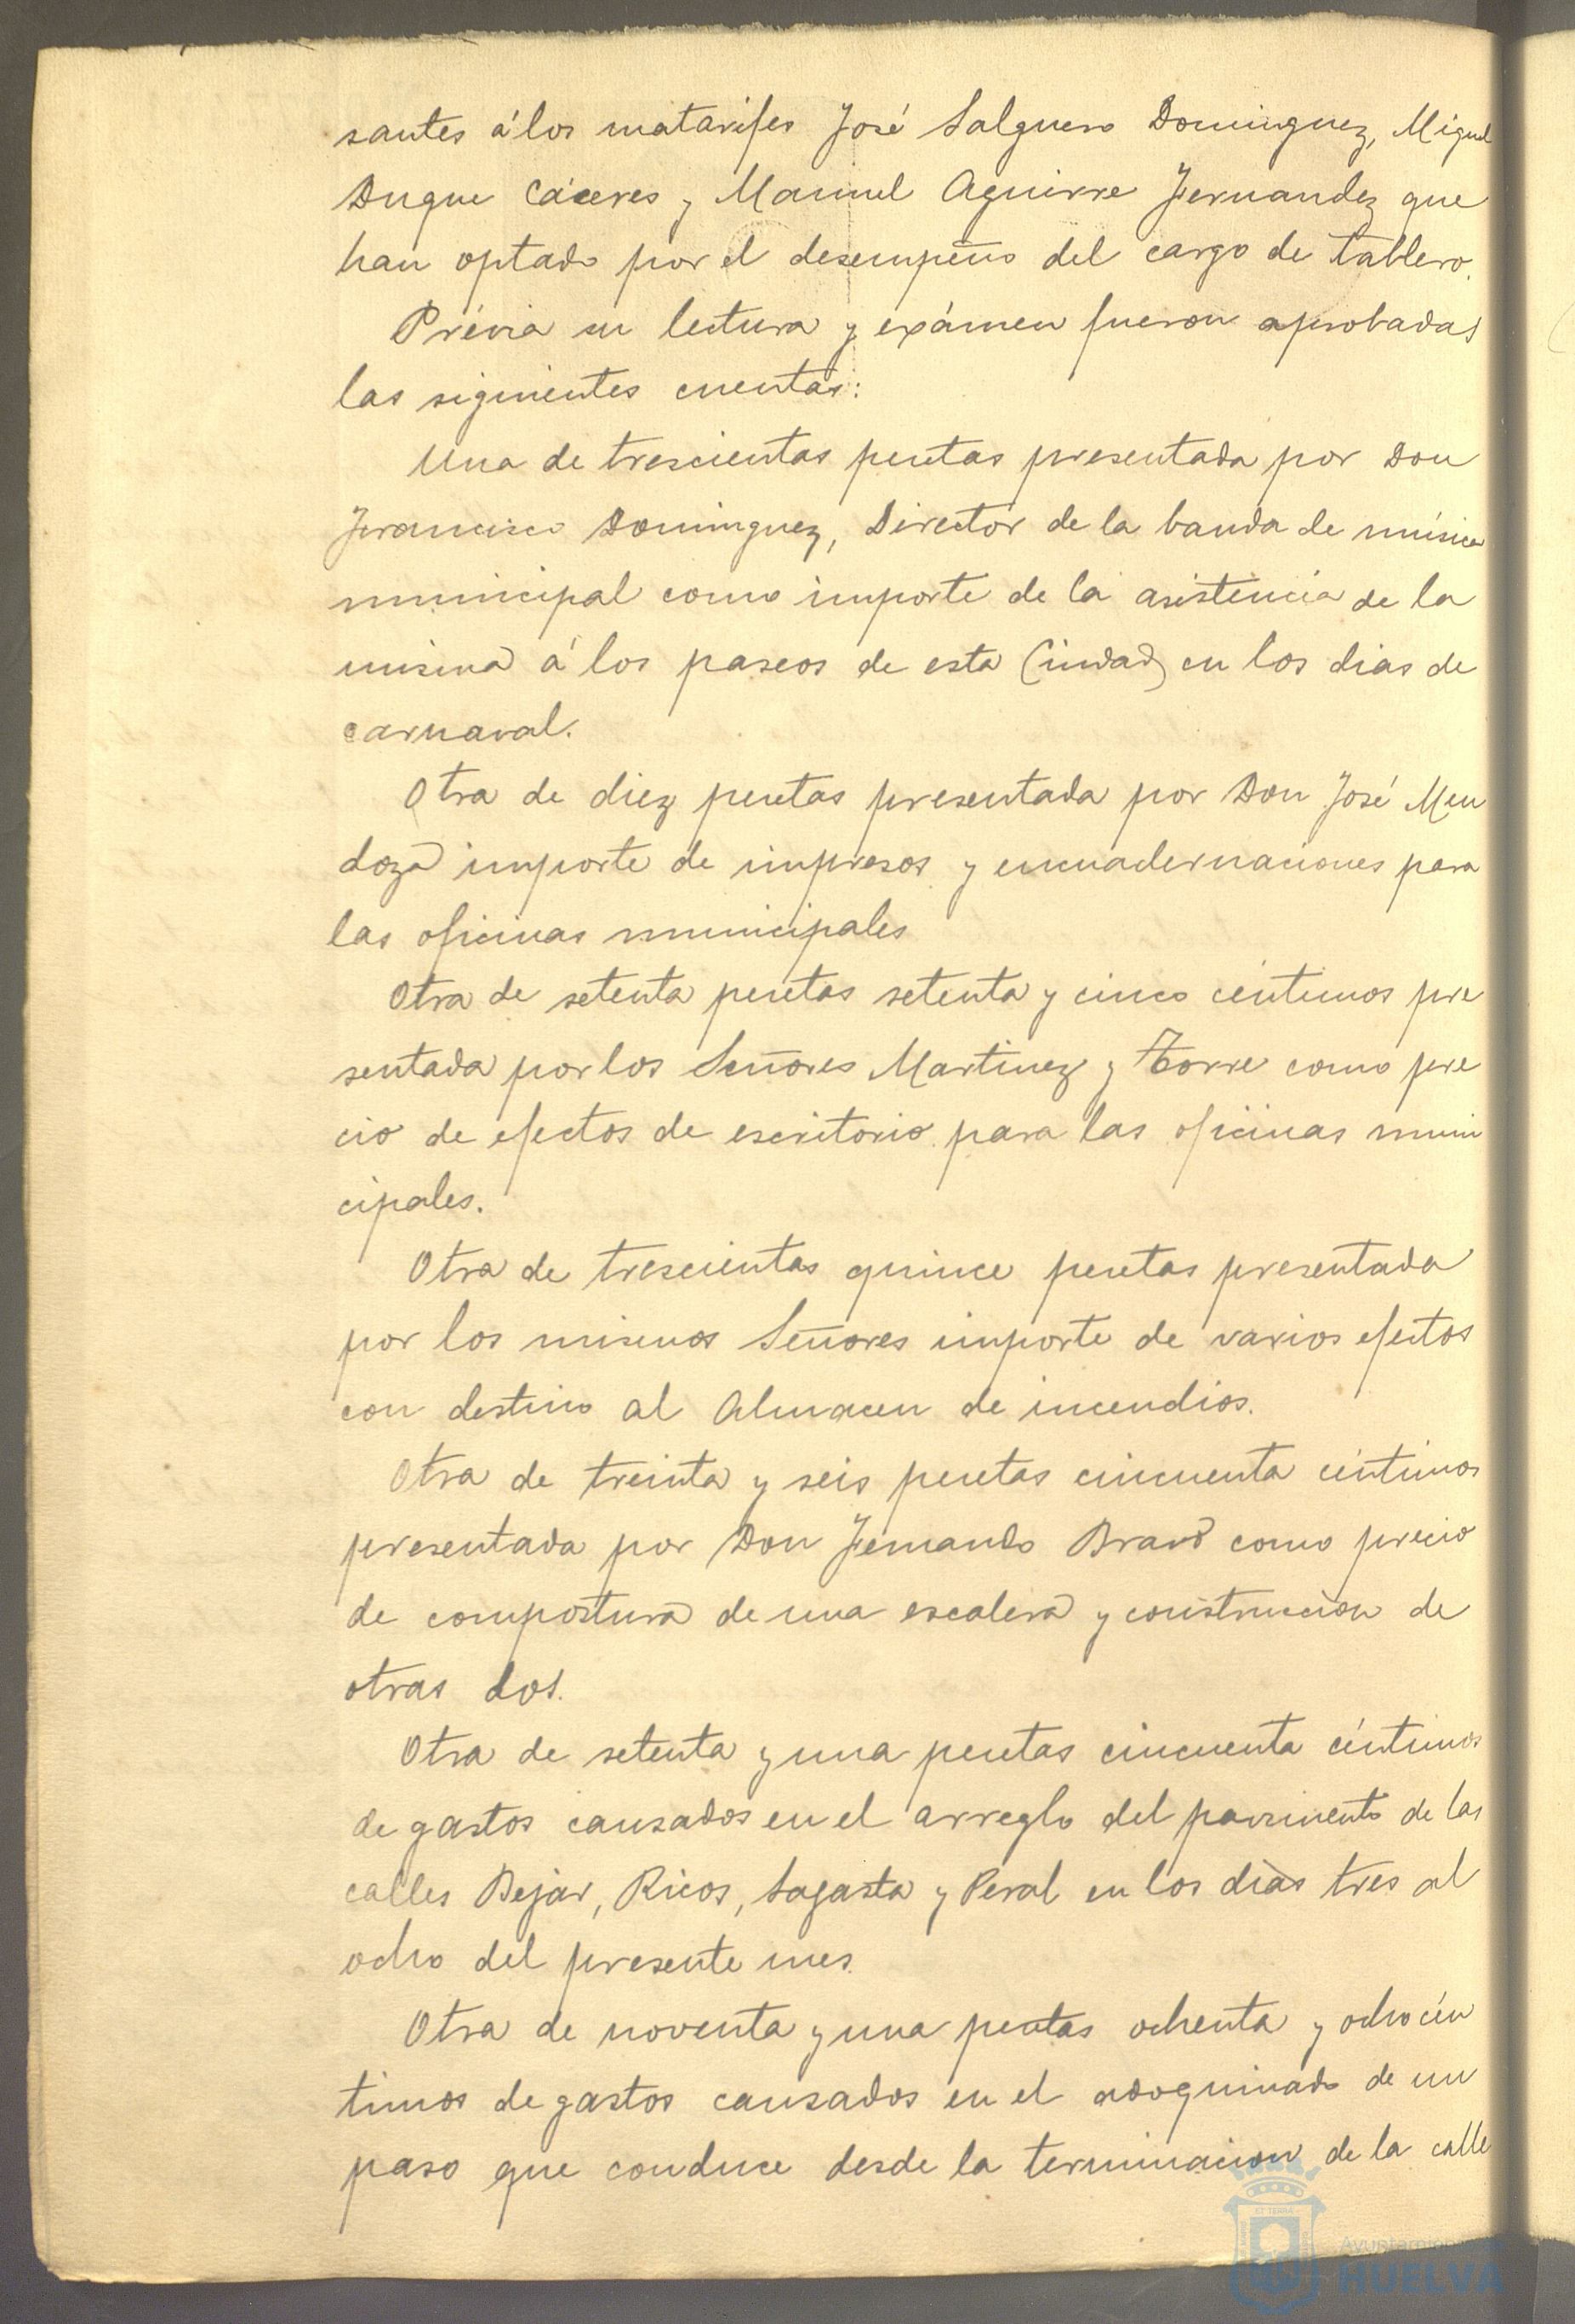 santes á los matarifes José Salguero Dominguez, Miguel
Duque Cáceres y Manuel Aguirre Fernandez que
han optado por el desempeño del cargo de tablero.
Prévia su lectura y exámen fueron aprobadas
las siguientes cuentas:
Una de trescientas pesetas presentada por Don
Francisco Dominguez, Director de la banda de música
municipal como importe de la asistencia de la
misma á los paseos de esta Ciudad en los dias de
carnaval.
Otra de diez pesetas presentada por Don José Men
doza importe de impresos y encuadernaciones para
las oficinas municipales
Otra de setenta pesetas setenta y cinco céntimos pre
sentada por los Señores Martinez y Torre como pre
cio de efectos de escritorio para las oficinas muni
cipales.
Otra de trescientas quince pesetas presentada
por los mismos Señores importe de varios efectos
con destino al Almacen de incendios.
Otra de treinta y seis pesetas cincuenta céntimos
presentada por Don Fernando Bravo como precio
de compostura de una escalera y construccion de
otras dos.
Otra de setenta y una pesetas cincuenta céntimos
de gastos causados en el arreglo del pavimento de las
calles Bejar, Ricos, Sagasta y Peral en los dias tres al
ocho del presente mes.
Otra de noventa y una pesetas ochenta y ocho cén
timos de gastos causados en el adoquinado de un
paso que conduce desde la terminacion de la calle
Ayuntamiento
HUELVA